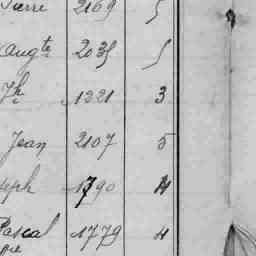 Pierre 2169 5
Augte 2035 5
Jh 1321 3
Jean 2107 5
seph 1790 4
Pascal 1779 4